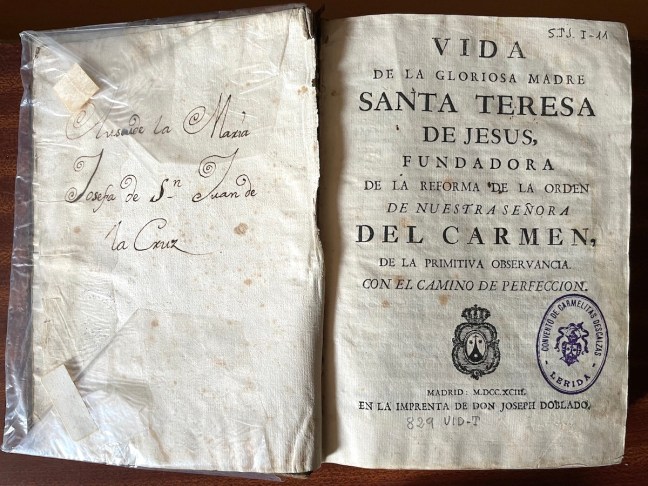 Ausacde la Maria
Josefa de Sn Juan de
la Cruz
S.TJ. I-11
VIDA
DE LA GLORIOSA MADRE
SANTA TERESA
DE JESUS,
FUNDADORA
DE LA REFORMA DE LA ORDEN
DE NUESTRA SEÑORA
DEL CARMEN,
DE LA PRIMITIVA OBSERVANCIA.
CON EL CAMINO DE PERFECCION.
CONVENTO DE CARMELITAS DESCALZAS
- LERIDA -
MADRID: M.DCC.XCIII.
EN LA IMPRENTA DE DON JOSEPH DOBLADO,
829 VID-T